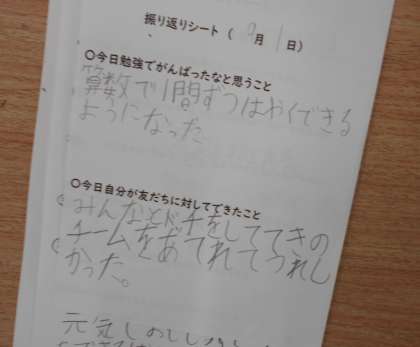 振り返りシート（ 9月 1日）
〇今日勉強でがんばったなと思うこと
算数で1問ずつはやくできる
ようになった
〇今日自分が友だちに対してできたこと
みんなとドッチをしててきの
チームをあてれてうれし
かった。
元気